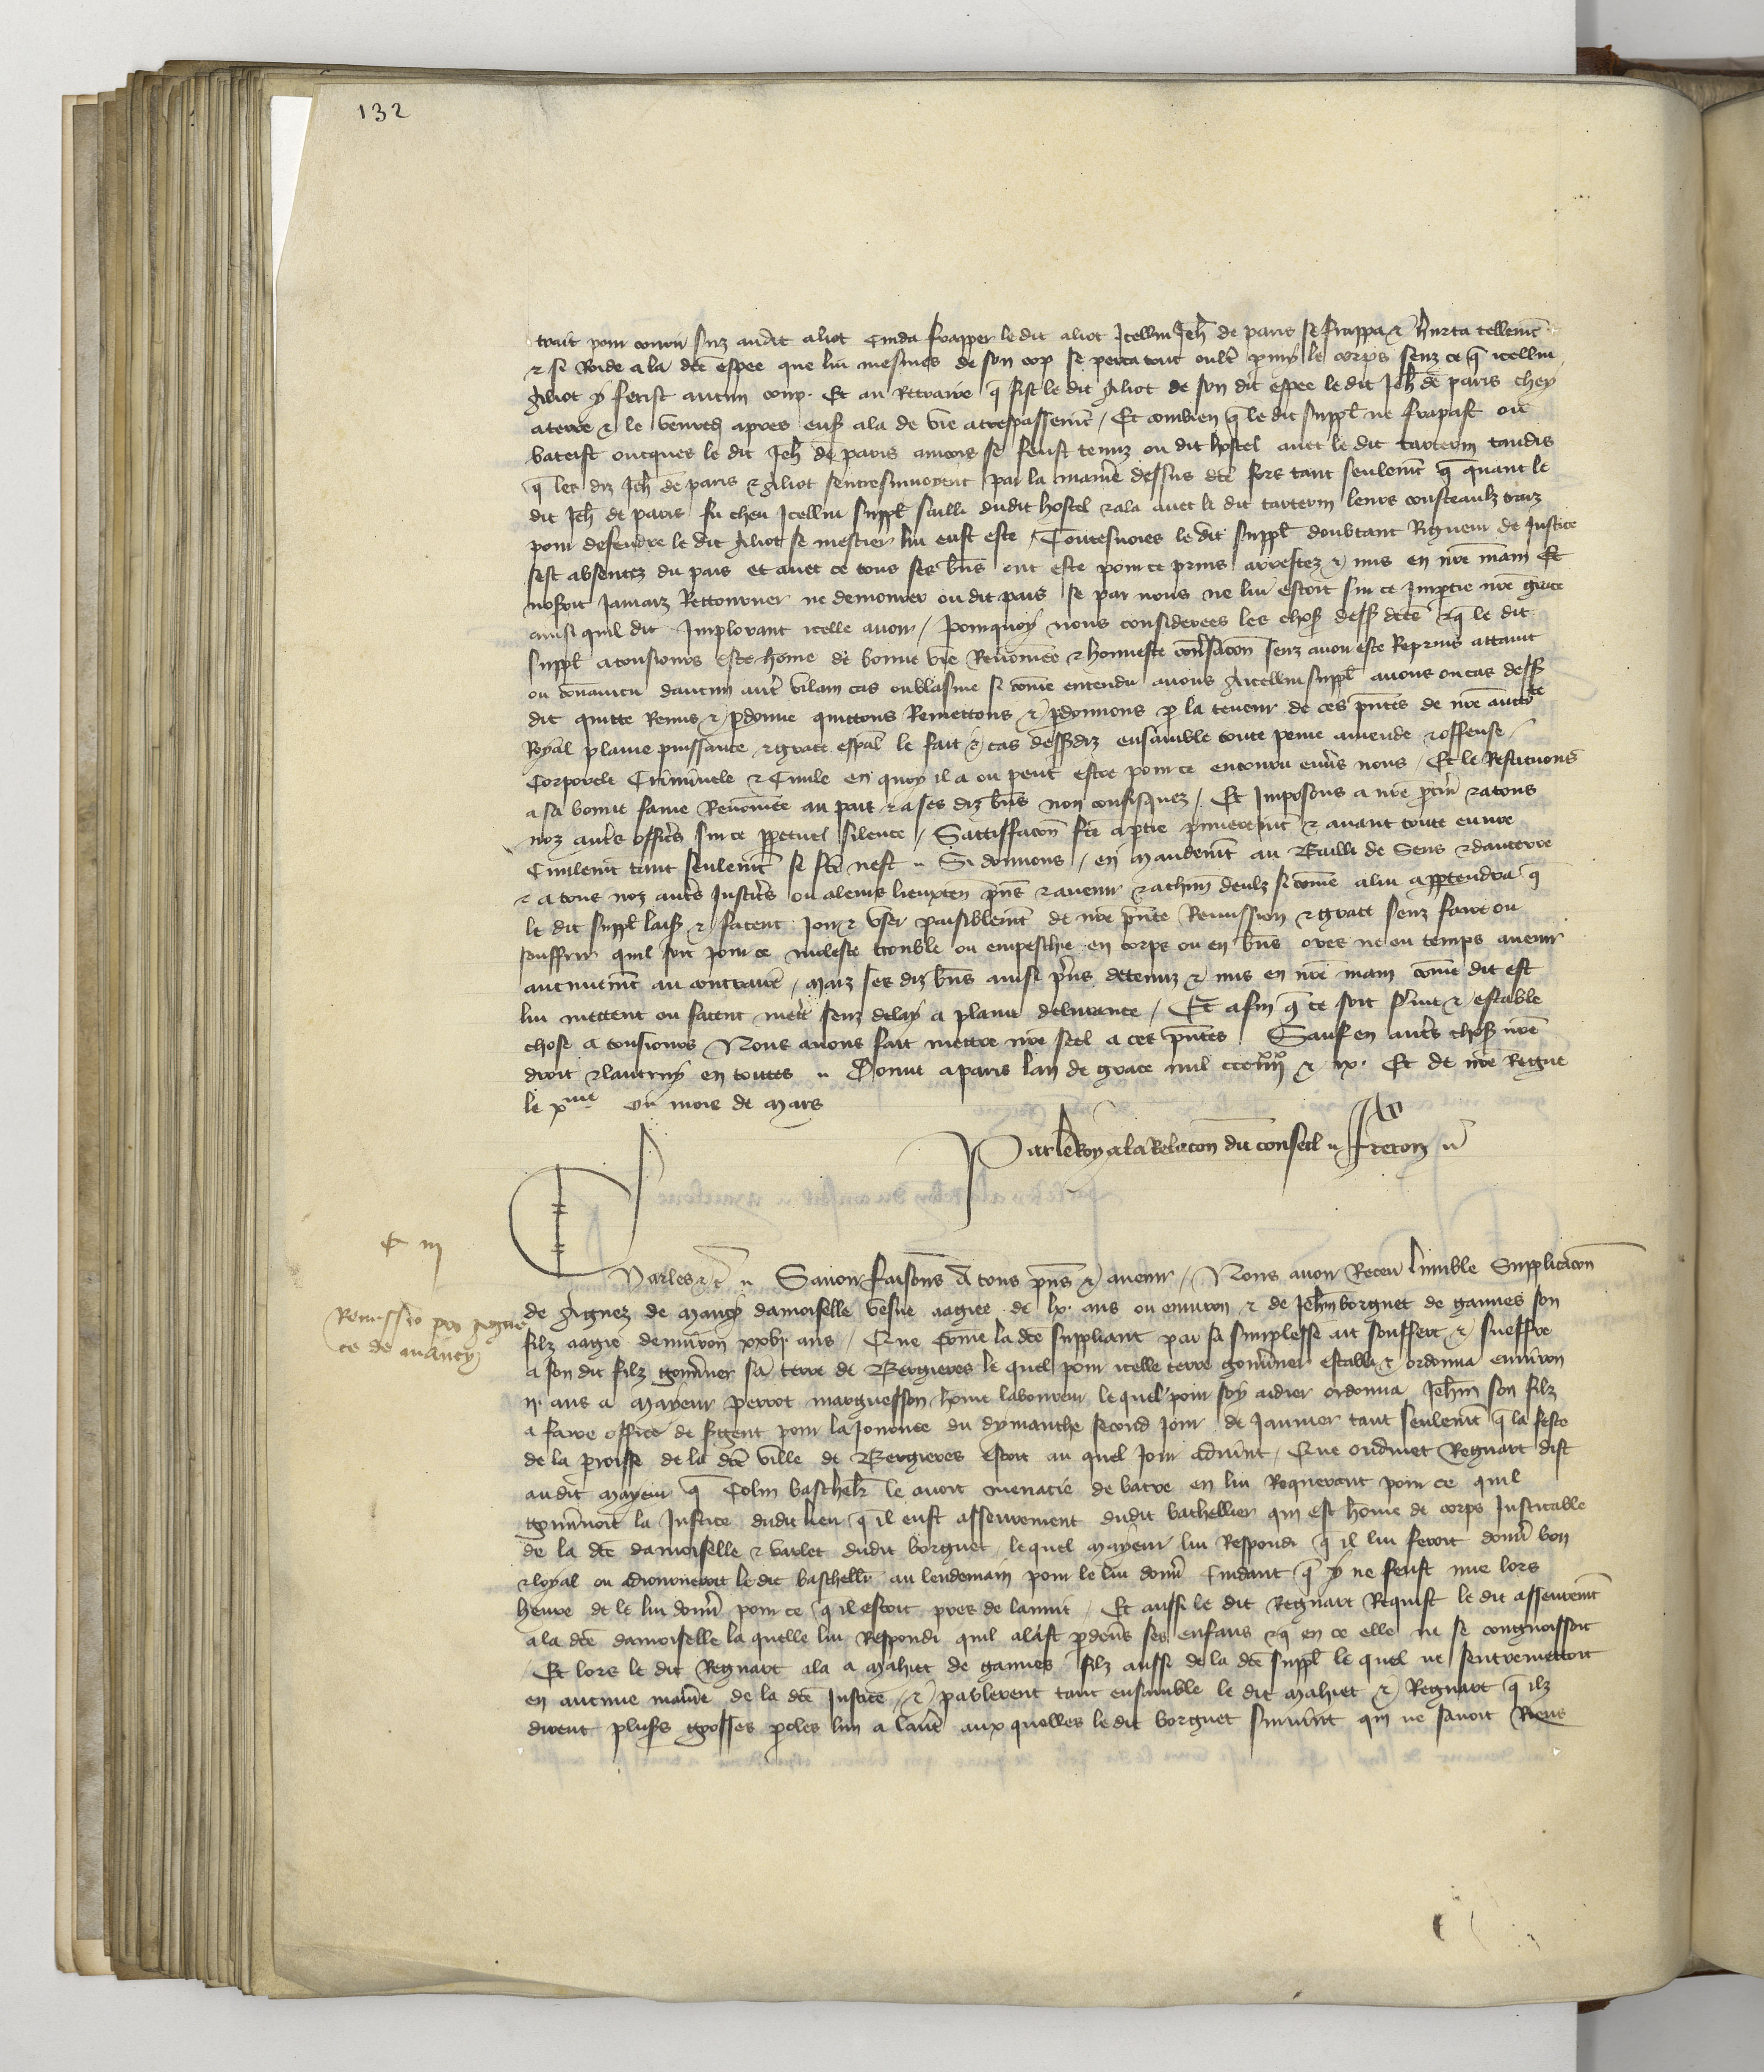 132
trait pour courir suz audit aliot cuida frapper le dit aliot Icellui Jeh de paris se frappa & hurta tellemt
& si Roide a la dce espee que lui mesmes de son cop se perca tout oultre pmy le corps senz ce q icellui
Aliot y ferist aucun coup. Et au Retraire q fist le dit Aliot de son dit espee le dit Jeh de paris chey
a terre & le venredi apres enss ala de vie a trespassemt / Et combien q le dit suppl ne frapast ou
bateist oncques le dit Jeh de paris aincois se feust tenuz ou dit hostel avec le dit tarterin tandis
q les diz Jeh de paris & Aliot sentresmurent par la maniere dessus dce fors tant seulemt q quant le
dit Jeh de paris fu cheu Icellui suppl sailli dudit hostel & ala avec le dit tarterin leurs cousteaulx traiz
pour defendre le dit Aliot se mestier lui eust este / Toutesvoies le dit suppl doubtant Rigueur de Justice
sest absentez du pais et avec ce tous ses bns ont este pour ce prins arrestez & mis en nre main Et
noseroit Jamaiz Rettourner ne demourer ou dit pais se par nous ne lui estoit sur ce Impartie nre grace
ainsi quil dit Implorant icelle avoir / Pourquoy nous considerees les choses dess dces & q le dit
suppl a tousiours este home de bonne vie Renomee & honneste conversacon senz avoir este Reprins attaint
ou convaincu daucun autre vilain cas ou blasme si come entendu avons A icellui suppl avons ou cas dess
dit quitte Remis & pdonne quittons Remettons & pdonnons p la teneur de ces pntes de nre aucte
Royal plaine puissance & grace espal le fait & cas dessusdiz ensamble toute peine amende & offense
Corporele Criminele & Civile en quoy il a ou peut estre pour ce encouru envers nous / Et le Restituons
a sa bonne fame Renomee au pait & a ses diz bns non confisquez / Et Imposons a nre pcur & a tous
noz autres officrs sur ce ppetuel silence / Sattisffacon fce a ptie pmieremt & avant toute euvre
Civilemt tant seulemt se fce nest " Si donnons / en Mandemt au Bailli de Sens & daucerre
& a tous noz autres Justicrs ou a leurs lieuxten pns & avenir & a chun deulz si come a lui apptendra q
le dit suppl laiss & facent Joir & user paisiblemt de nre pnte Remission & grace senz faire ou
souffrir quil soit pour ce moleste trouble ou empeschie en corps ou en bns ores ne ou temps avenir
aucunemt au contraire / Maiz ses diz bns ainsi prins detenuz & mis en nre main come dit est
lui mettent ou facent mett senz delay a plaine delivrance / Et afin q ce soit ferme & estable
chose a tousiours Nous avons fait mettre nre seel a ces pntes Sauf en autres choses nre
droit & lautruy en toutes " Donne a paris lan de grace mil ccc iiijxx & ix. Et de nre Regne
le xme ou mois de Mars
Par le Roy a la Relacon du conseil " Freron "
Charles &c " Savoir faisons A tous pns & avenir / Nous avoir Receu lumble Supplicacon
de Agnez de Mancy damoiselle vesve aagiee de lx. ans ou environ & de Jehin borgnet de gannes son
Remissio pro Agne
te de mancy
filz aagie denviron xxvj ans / Que Come la dce suppliant par sa simplesse ait souffert & sueffre
a son dit filz gouverner sa terre de Bergieres le quel pour icelle terre gouverner establi & ordonna environ
ij ans a Mayeur perrot marguesson home laboureur le quel pour soy aidier ordonna Jehin son filz
a faire office de sergent pour la Journee du dymanche second Jour de Janvier tant seulemt q la feste
de la proisse de la dce ville de Bergieres estoit au quel Jour advint / Que oudinet Regnart dist
au dit Mayeur q Colin baschelr le avoit menacie de batre en lui Requerant pour ce quil
gouvernoit la Justice dudit lieu q il eust asseurement dudit bachellier qui est home de corps Justicable
de la dce damoiselle & varlet dudit borgnet le quel Mayeur lui Respondi q il lui feroit donner bon
& loyal ou adiourneroit le dit baschellr au lendemain pour le lui donner Cuidant q y ne feust mie lors
heure de le lui donner pour ce q il estoit pres de lanuit / Et aussi le dit Regnart Requist le dit asseuremt
a la dce damoiselle la quelle lui Respondi quil alast pdevers ses enfans & q en ce elle ne se congnoissoit
/ Et lors le dit Regnart ala a Mahiet de gannes filz aussi de la dce suppl le quel ne sentremettoit
en aucune maniere de la dce Justice / & parlerent tant ensamble le dit Mahiet & Regnart q ilz
dirent pluss grosses proles lun a lautre aux quelles le dit borgnet survint qui ne savoit Riens